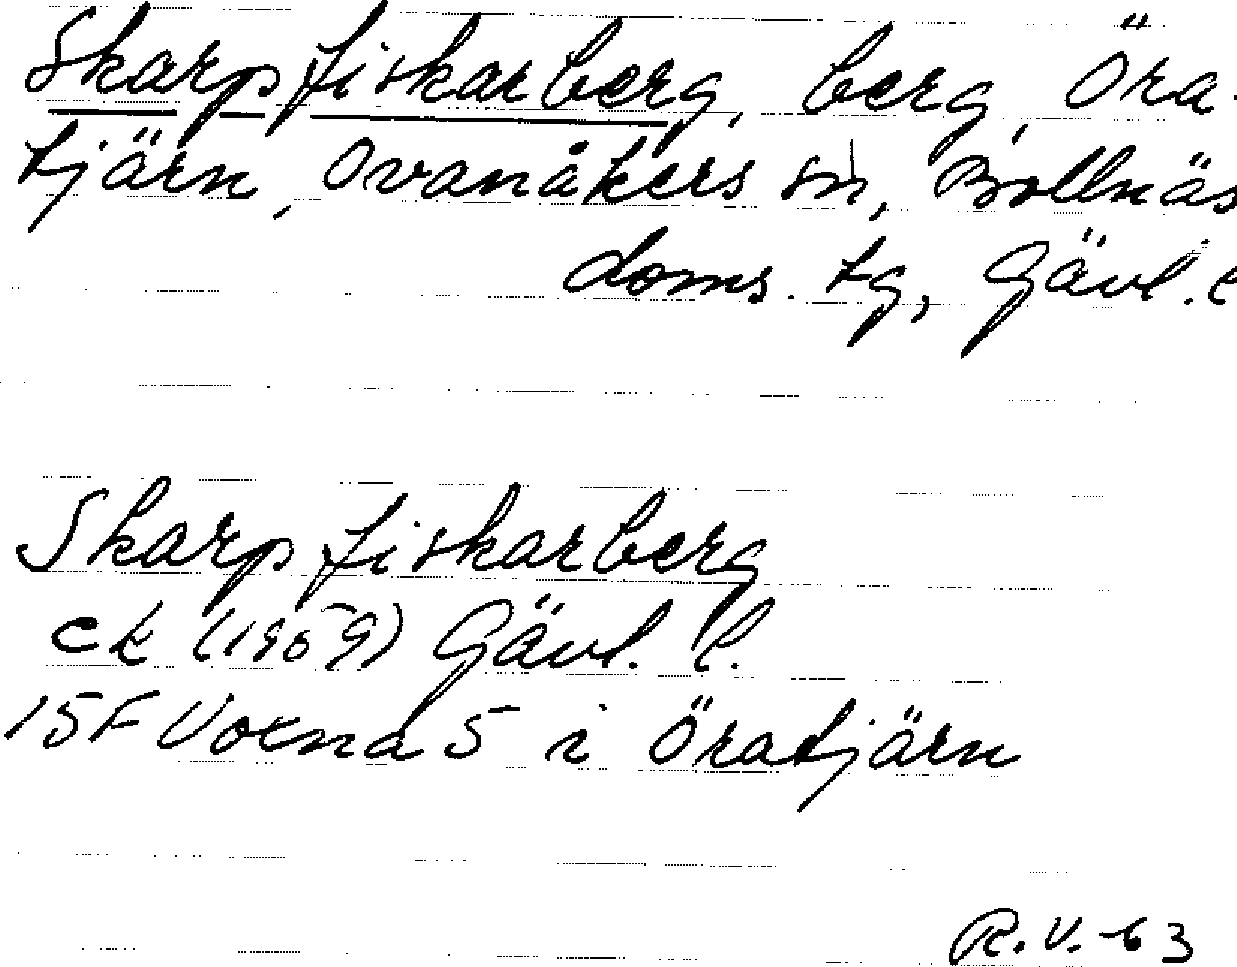 Skarpfiskarberg, berg, Öra-
tjärn, Ovanåkers sn, Bollnäs
doms. tg, Gävl. l
Skarpfiskarberg
ek (1959) Gävl. l.
15F Voxna 5 i Öratjärn
R.V.-63